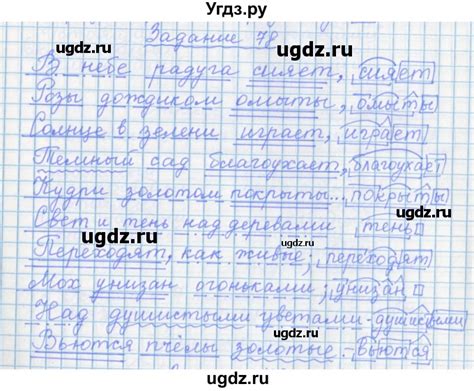 Угдз.ру
Задание 78
ugdz.ru ugdz.ru
В небе радуга сияет, сияет
Розы дождиком омыты, омыты
ugdz.ru ugdz.ru
Солнце в зелени играет, играет
Темный сад благоухает, благоухает
ugdz.ru ugdz.ru
Кудри золотом покрыты... покрыты
Свет и тень над деревами тень
ugdz.ru
Переходят, как живые; переходят
ugdz.ru
Мох унизан огоньками; унизан
ugdz.ru
Над душистыми цветами - душистыми
ugdz.ru
Вьются пчёлы золотые. Вьются